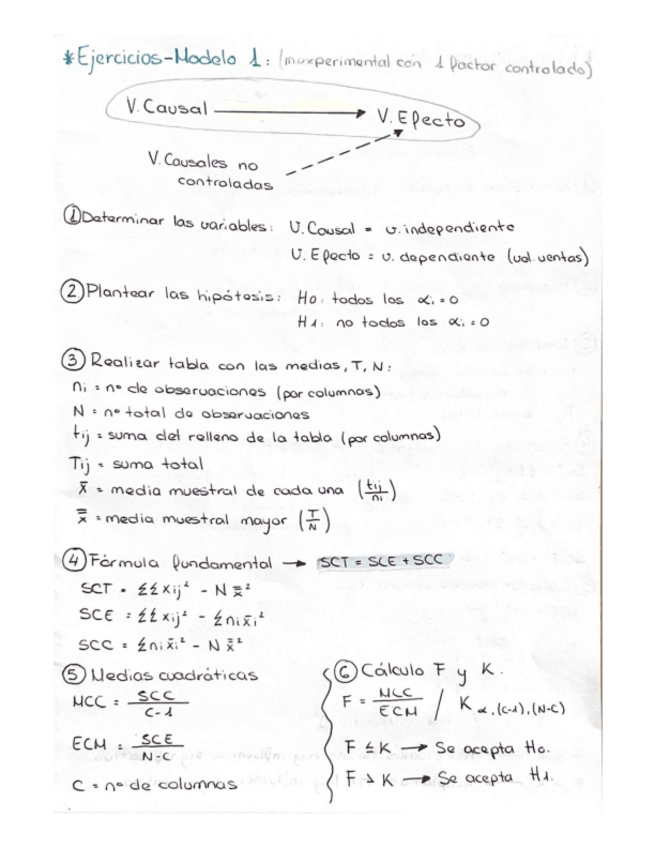 *Ejercicios-Modelo 1: (muxperimental con 1 factor controlado)
V. Causal → V. Efecto
V. Causales no
controladas
① Determinar las variables: V. Causal = v. independiente
V. Efecto = v. dependiente (vol. ventas)
② Plantear las hipótesis: H0: todos los αi = 0
H1: no todos los αi = 0
③ Realizar tabla con las medias, T, N:
ni = nº de observaciones (por columnas)
N = nº total de observaciones
tij = suma del relleno de la tabla (por columnas)
Tij = suma total
x̄ = media muestral de cada una (tij/ni)
x̿ = media muestral mayor (T/N)
④ Fórmula fundamental → SCT = SCE + SCC
SCT = ΣΣxij² - N x̿²
SCE = ΣΣxij² - Σni x̄i²
SCC = Σni x̄i² - N x̿²
⑤ Medias cuadráticas
MCC = SCC / C-1
ECM = SCE / N-C
C = nº de columnas
⑥ Cálculo F y K.
F = MCC / ECM / K α,(C-1),(N-C)
F ≤ K → Se acepta H0.
F > K → Se acepta H1.